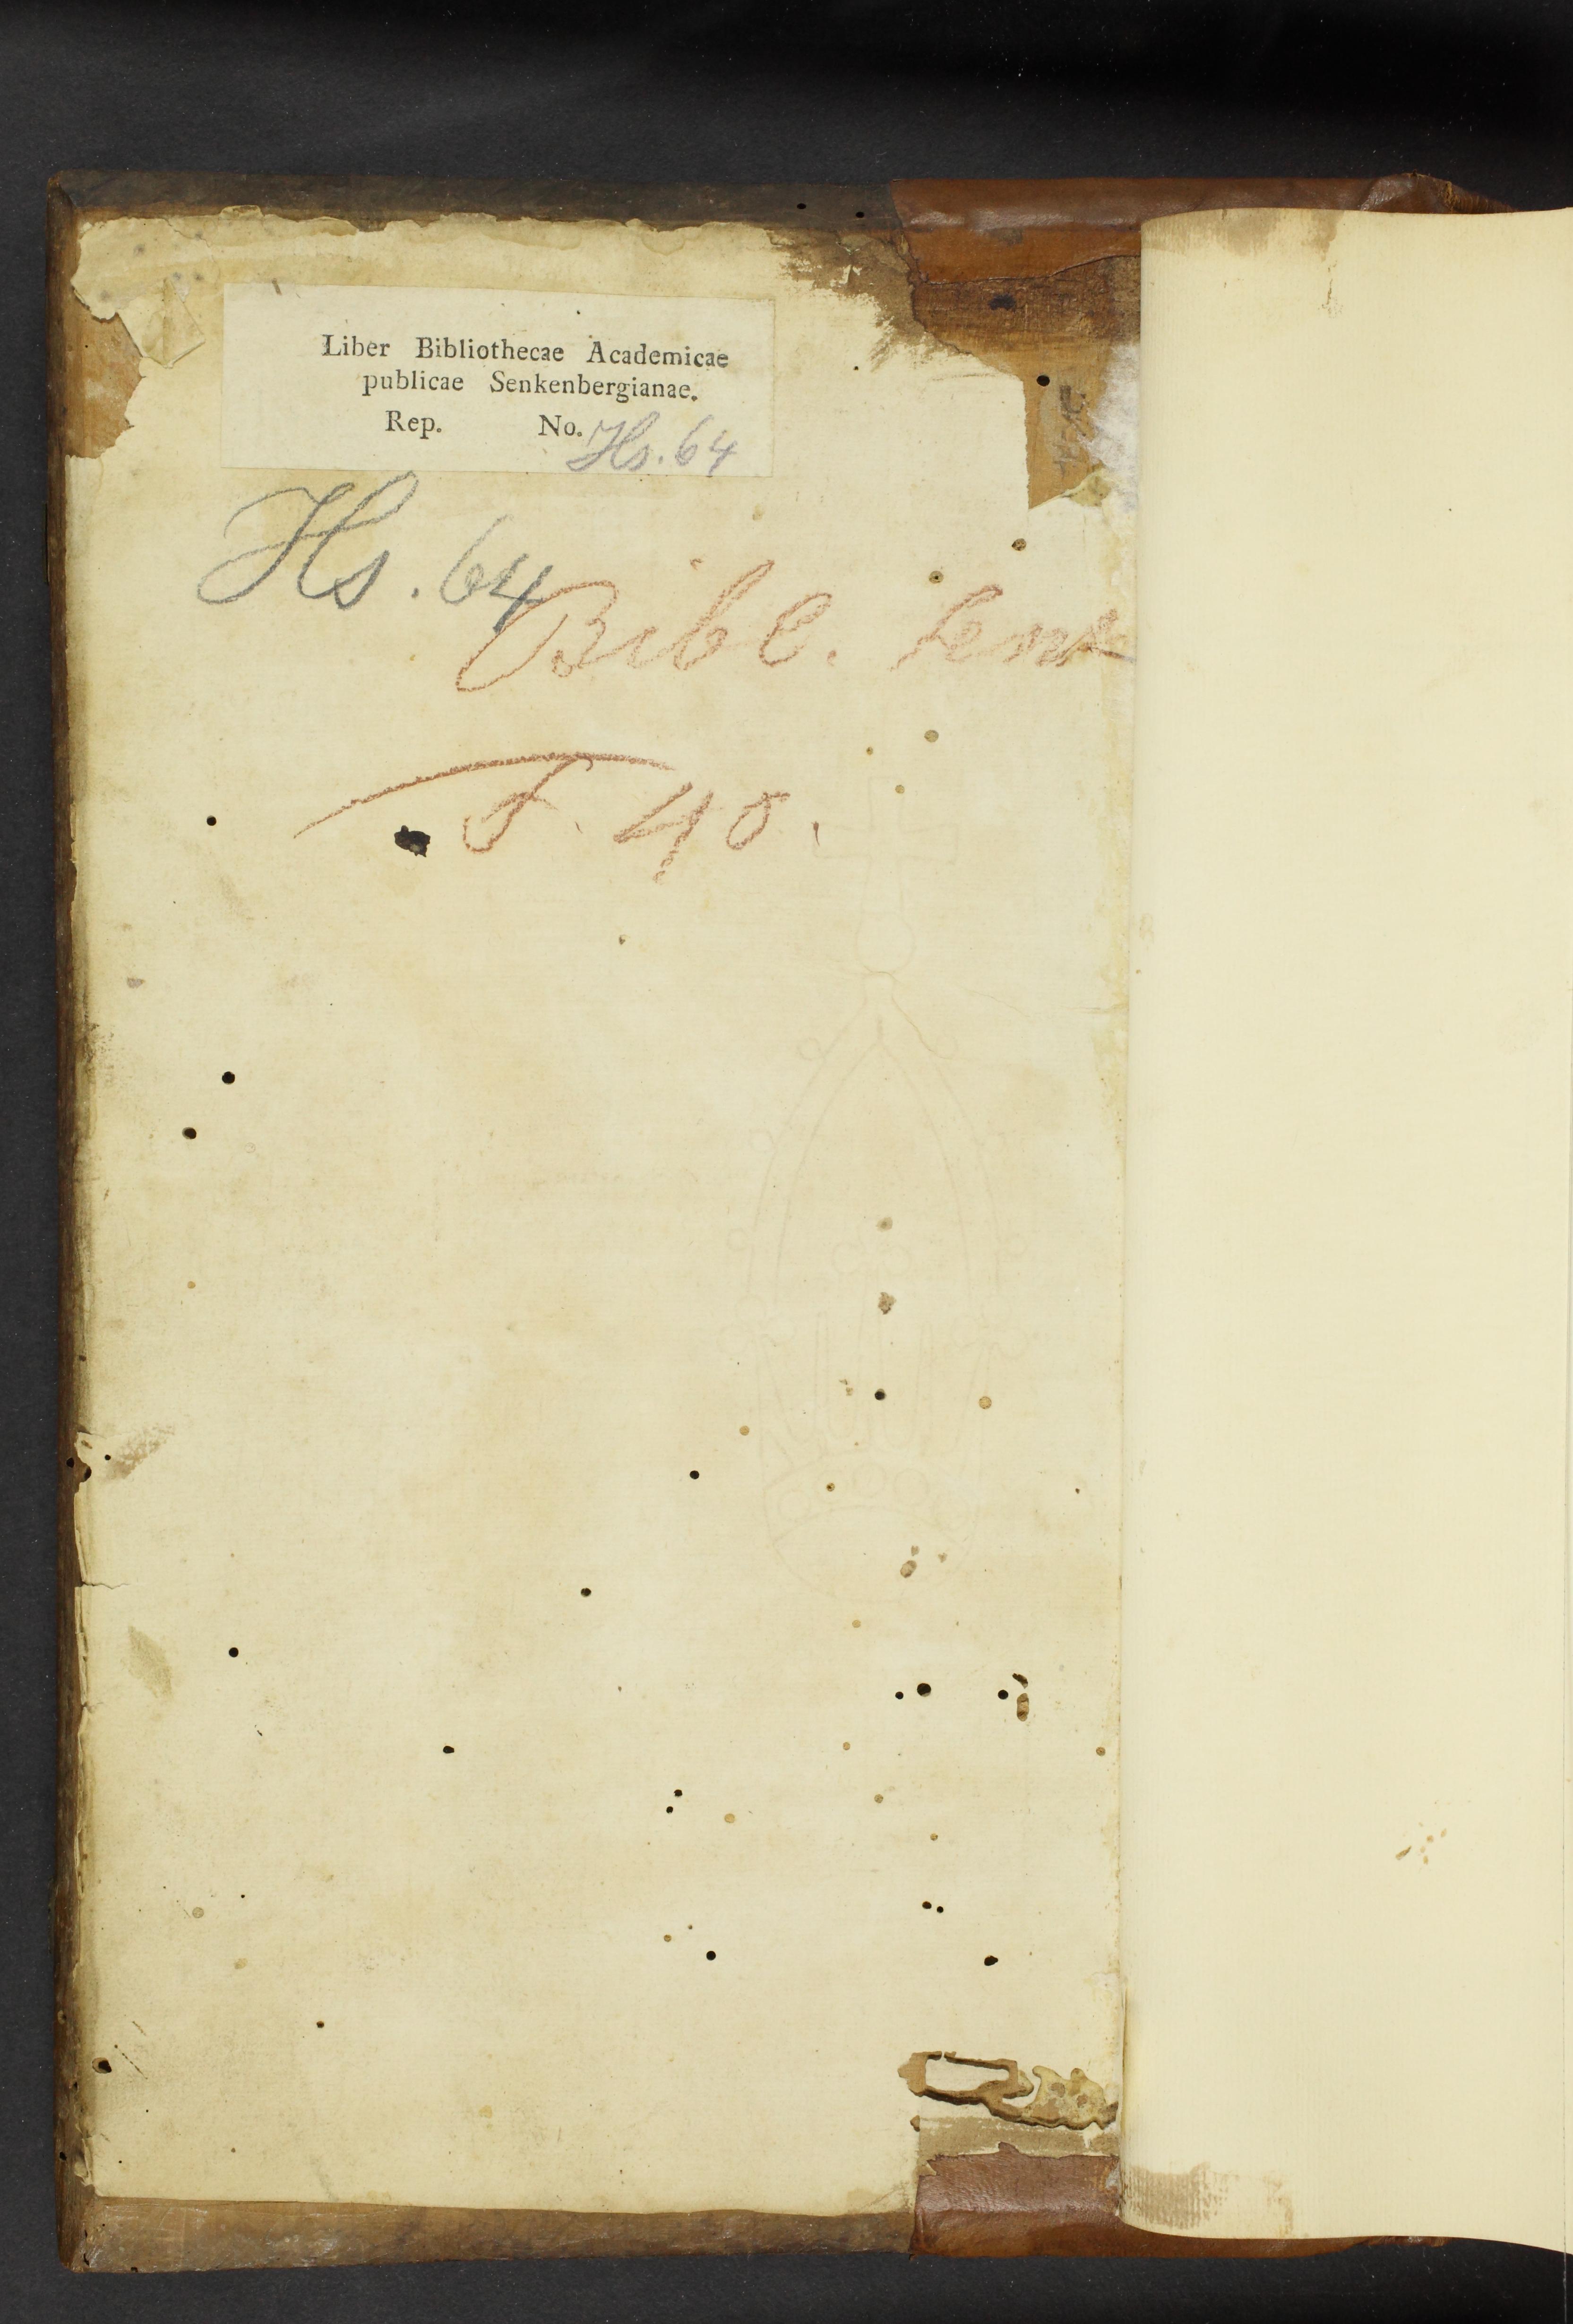 Liber Bibliothecae Academicae
publicae Senkenbergianae.
Rep. No. Hs. 64
Hs. 64
Bibl. Senk
F. 40.